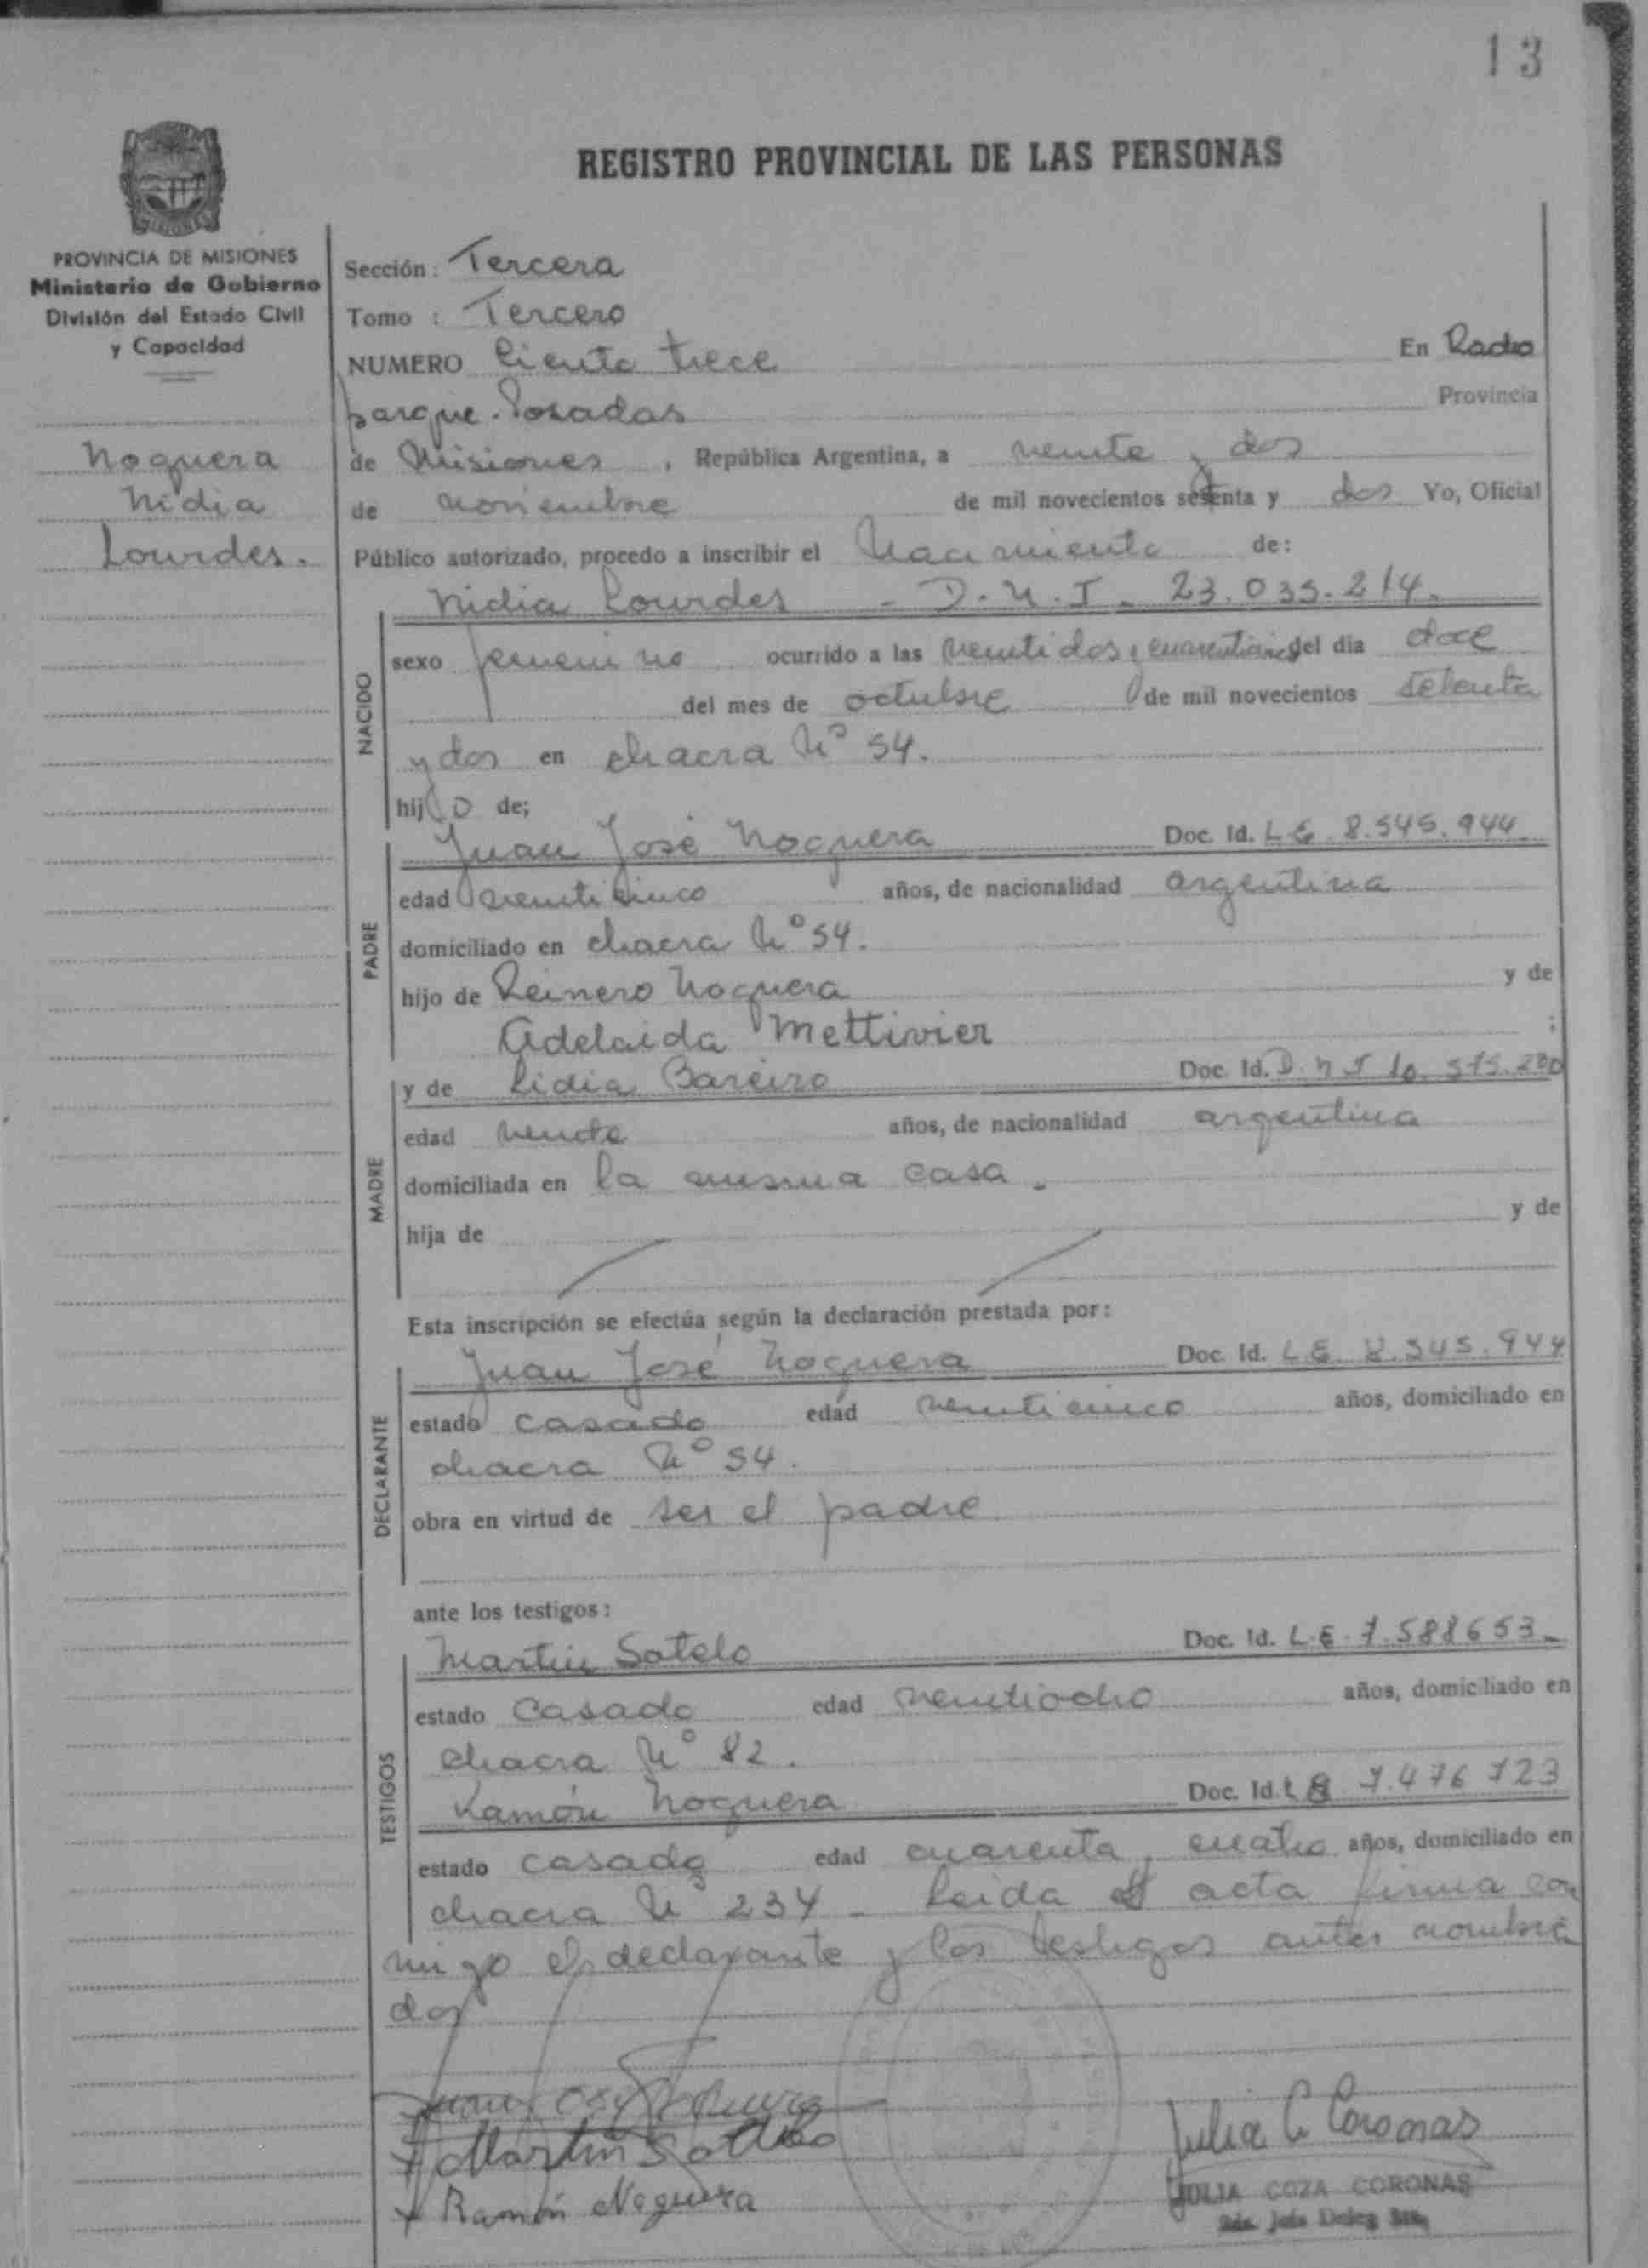 13
REGISTRO PROVINCIAL DE LAS PERSONAS
PROVINCIA DE MISIONES
Ministerio de Gobierno
División del Estado Civil
y Capacidad
Noguera
Nidia
Lourdes.
Sección: Tercera
Tomo : Tercero
NUMERO Ciento trece En Radio
parque. Posadas Provincia
de Misiones, República Argentina, a veinte y dos
de noviembre de mil novecientos setenta y dos Yo, Oficial
Público autorizado, procedo a inscribir el Nacimiento de:
Nidia Lourdes - D.N.I. 23.035.214.
NACIDO
sexo femenino ocurrido a las veintidos y del dia doce
del mes de octubre de mil novecientos setenta
y dos en chacra Nº 54.
hijo de;
PADRE
Juan José Noguera Doc. Id. L E. 8.545.944
edad veinticinco años, de nacionalidad argentina
domiciliado en chacra Nº 54.
hijo de Reinero Noguera y de
Adelaida Mettivier ;
MADRE
y de Lidia Bareiro Doc. Id. D.N.I 10.575.200
edad veinte años, de nacionalidad argentina
domiciliada en la misma casa.
hija de y de
Esta inscripción se efectúa según la declaración prestada por:
DECLARANTE
Juan José Noguera Doc. Id. L E. 8.545.944
estado casado edad veinticinco años, domiciliado en
chacra Nº 54.
obra en virtud de ser el padre
ante los testigos:
TESTIGOS
Martin Sotelo Doc. Id. L.E. 7.588653-
estado casado edad veintiocho años, domiciliado en
chacra Nº 82.
Ramón Noguera Doc. Id. L E 7.476 723
estado casado edad cuarenta y cuatro años, domiciliado en
chacra Nº 234 - Leida el acta firma con
migo el declarante y los testigos antes nombra
dos
Martin Sotelo
Ramón Noguera
Julia C Coronas
JULIA COZA CORONAS